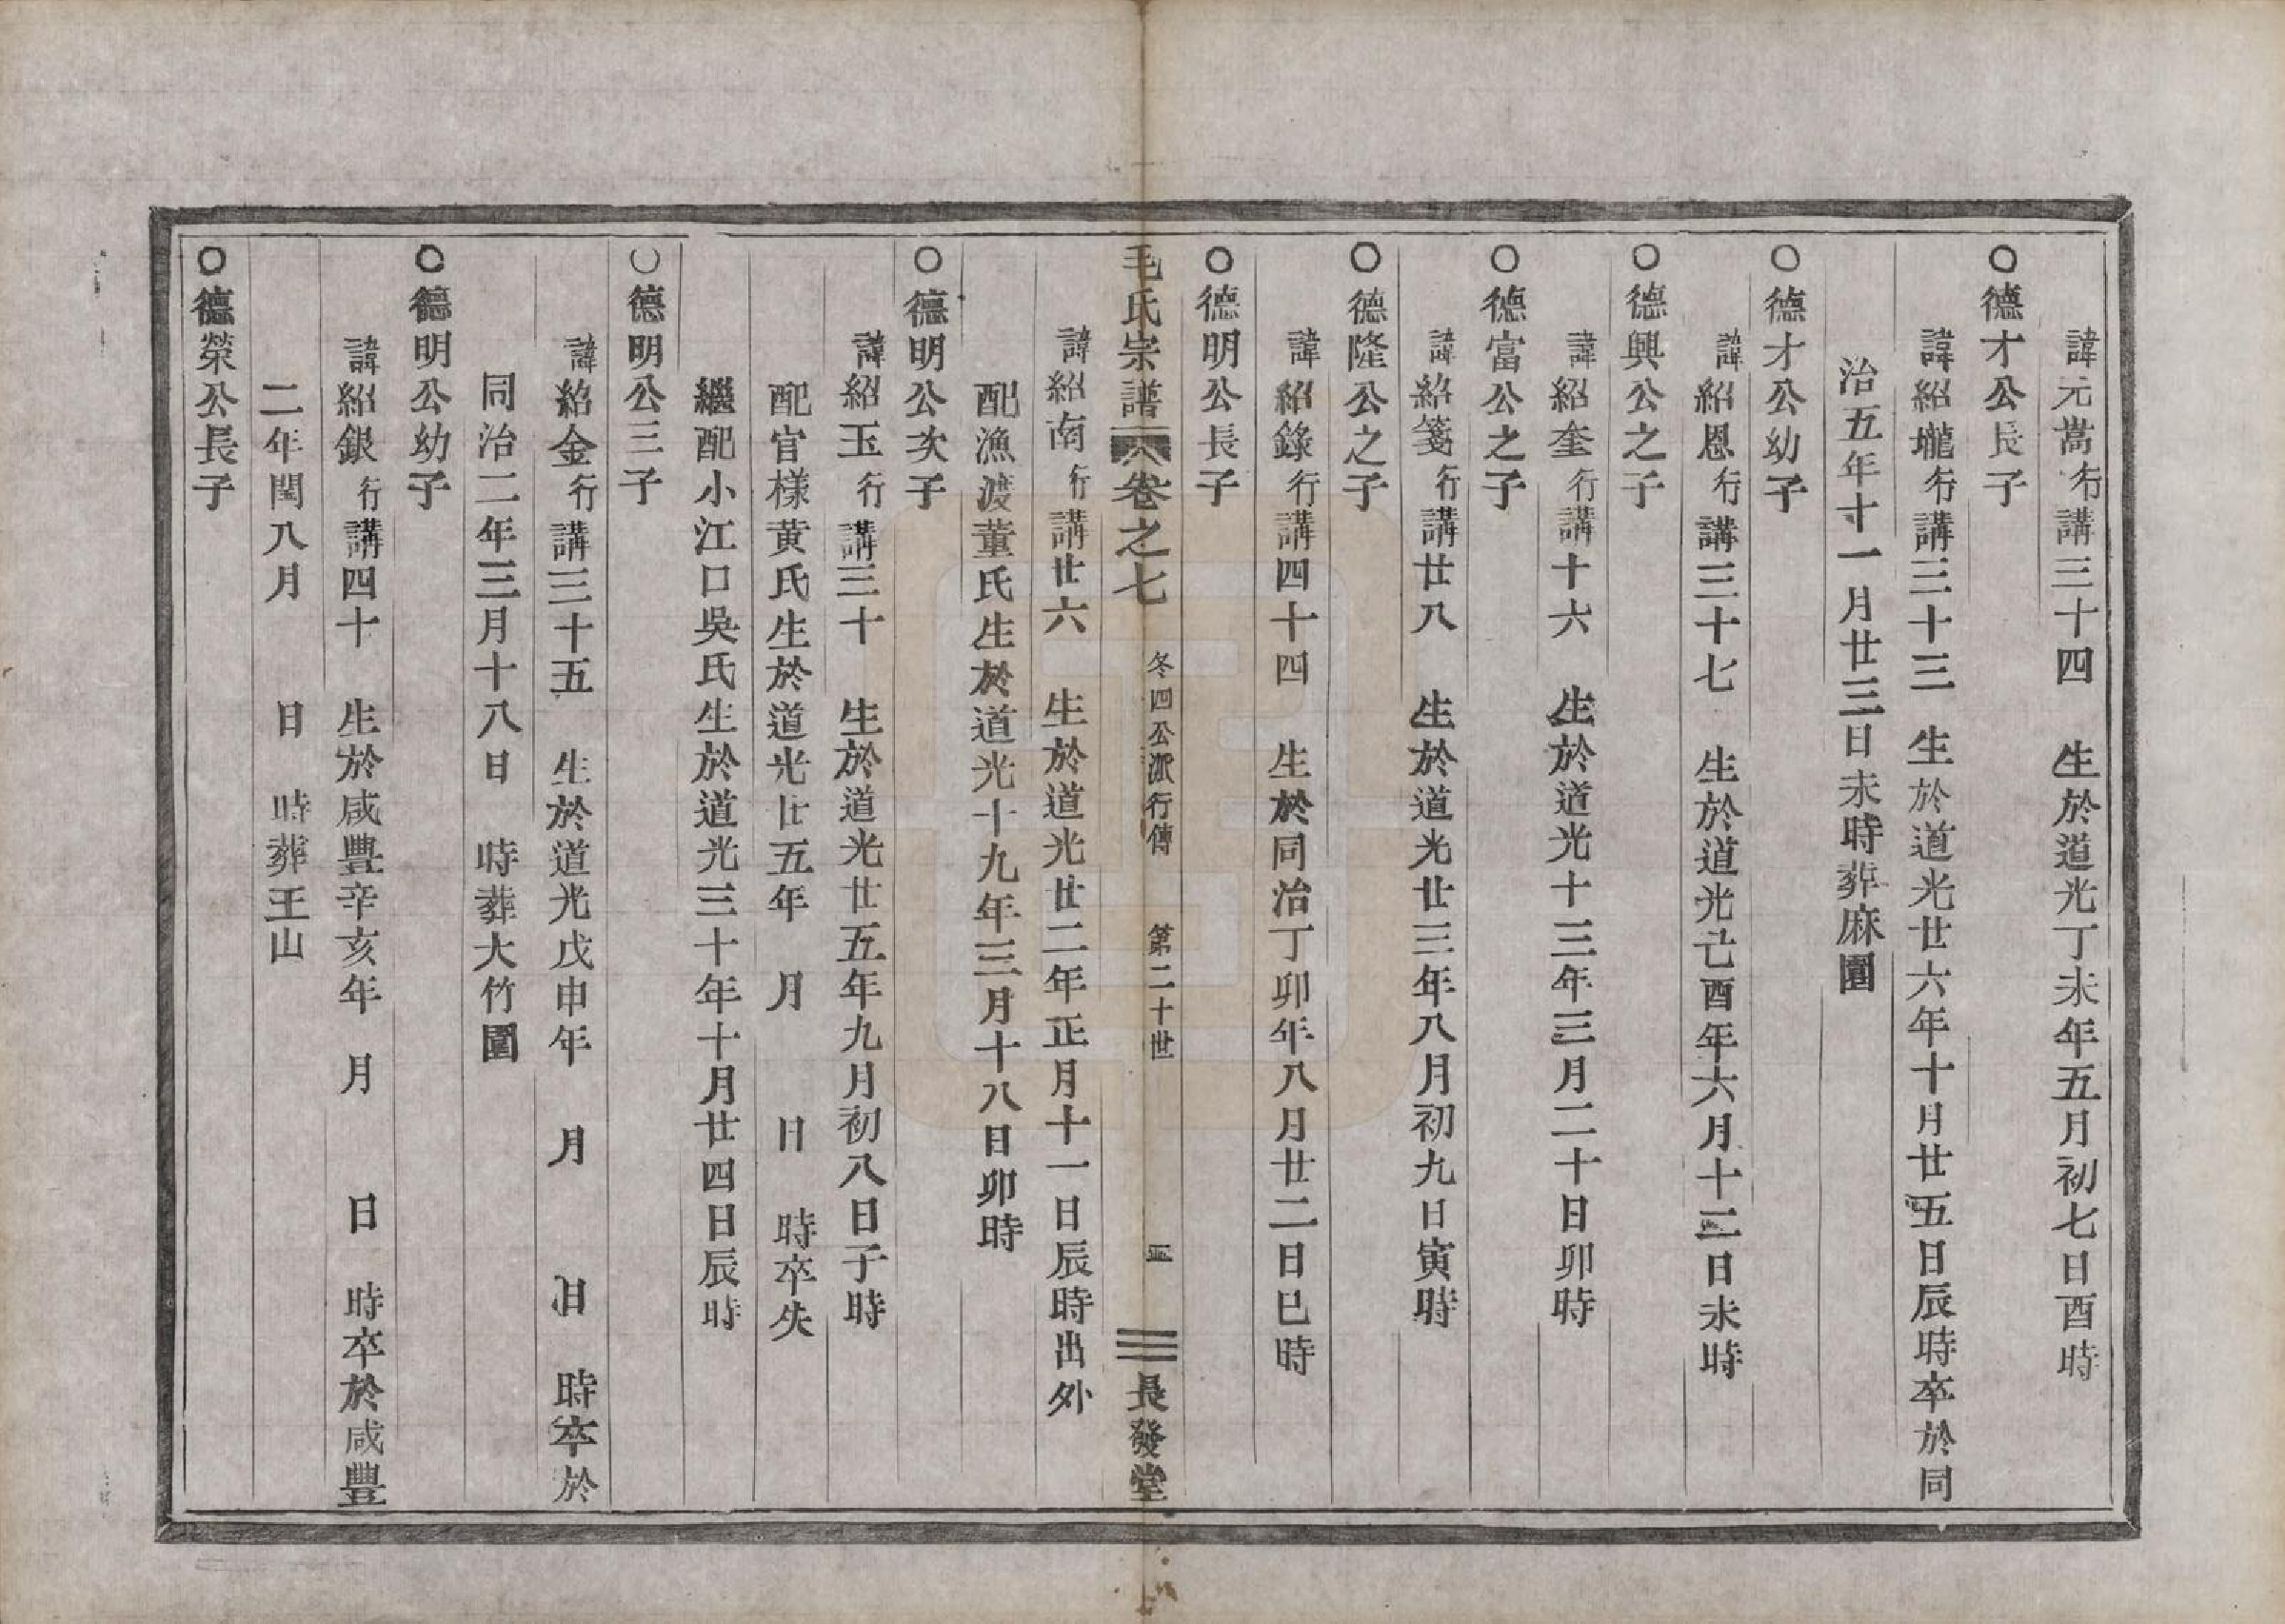 諱元嵩行講三十四　生於道光丁未年五月初七日酉時
○德才公長子
諱紹壠行講三十三　生於道光廿六年十月廿五日辰時卒於同
治五年十一月廿三日未時葬麻園
○德才公幼子
諱紹恩行講三十七　生於道光己酉年六月十二日未時
○德興公之子
諱紹奎行講十六　生於道光十三年三月二十日卯時
○德富公之子
諱紹箋行講廿八　生於道光廿三年八月初九日寅時
○德隆公之子
諱紹錄行講四十四　生於同治丁卯年八月廿二日巳時
○德明公長子
毛氏宗譜　卷之七　冬四公派行傳　第二十世　長發堂
諱紹南行講廿六　生於道光廿二年正月十一日辰時出外
配漁渡董氏生於道光十九年三月十八日卯時
○德明公次子
諱紹玉行講三十　生於道光廿五年九月初八日子時
配官樣黃氏生於道光廿五年　月　日　時卒失
繼配小江口吳氏生於道光三十年十月廿四日辰時
○德明公三子
諱紹金行講三十五　生於道光戊申年　月　日　時卒於
同治二年三月十八日　時葬大竹園
○德明公幼子
諱紹銀行講四十　生於咸豐辛亥年　月　日　時卒於咸豐
二年閏八月　日　時葬王山
○德榮公長子